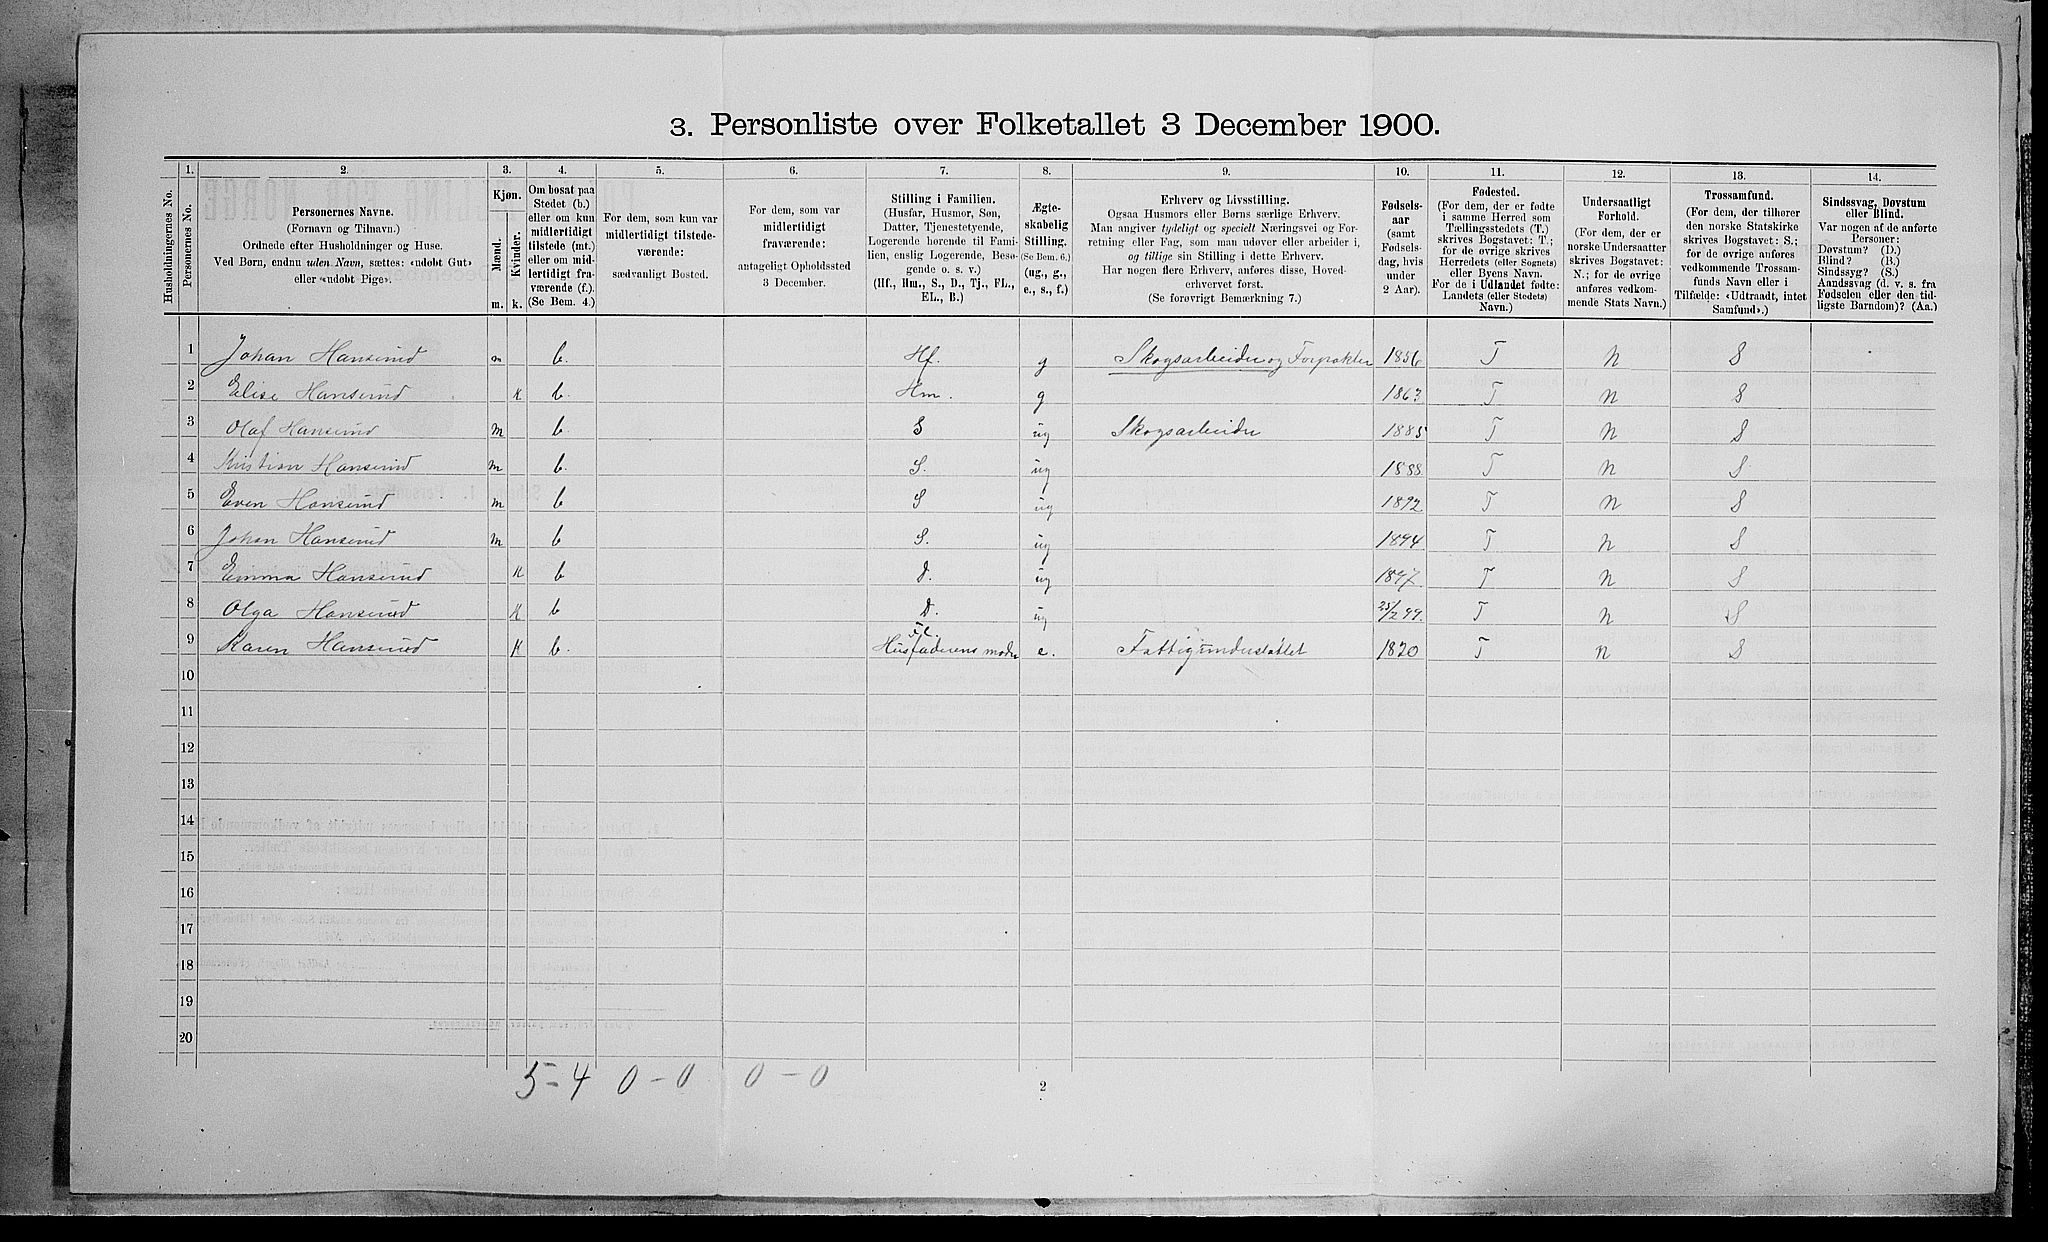 3. Personliste over Folketallet 3 December 1900.
1. 2. 3. 4. 5. 6. 7. 8. 9. 10. 11. 12. 13. 14.
Husholdningernes No.
Personernes No.
Personernes Navne.
(Fornavn og Tilnavn.)
Ordnede efter Husholdninger og Huse.
Ved Børn, endnu uden Navn, sættes: «udøbt Gut»
eller «udøbt Pige».
Kjøn.
Mænd.
Kvinder.
m. k.
Om bosat paa
Stedet (b.)
eller om kun
midlertidigt
tilstede (mt.)
eller om mid-
lertidigt fra-
værende (f.).
(Se Bem. 4.)
For dem, som kun var
midlertidigt tilstede-
værende:
sædvanligt Bosted.
For dem, som var
midlertidigt
fraværende:
antageligt Opholdssted
3 December.
Stilling i Familien.
(Husfar, Husmor, Søn,
Datter, Tjenestetyende,
Logerende hørende til Fami-
lien, enslig Logerende, Besø-
gende o. s. v.)
(Hf., Hm., S., D., Tj., FL.,
EL., B.)
Ægte-
skabelig
Stilling.
(Se Bem. 6.)
(ug., g.,
e., s., f.)
Erhverv og Livsstilling.
Ogsaa Husmors eller Børns særlige Erhverv.
Man angiver tydeligt og specielt Næringsvei og For-
retning eller Fag, som man udøver eller arbeider i,
og tillige sin Stilling i dette Erhverv.
Har nogen flere Erhverv, anføres disse, Hoved-
erhvervet først.
(Se forøvrigt Bemærkning 7.)
Fødsels-
aar
(samt
Fødsels-
dag, hvis
under
2 Aar).
Fødested.
(For dem, der er fødte
i samme Herred som
Tællingsstedets (T.)
skrives Bogstavet: T.;
for de øvrige skrives
Herredets (eller Sognets)
eller Byens Navn.
For de i Udlandet fødte:
Landets (eller Stedets)
Navn.)
Undersaatligt
Forhold.
(For dem, der er
norske Undersaatter
skrives Bogstavet:
N.; for de øvrige
anføres vedkom-
mende Stats Navn.)
Trossamfund.
(For dem, der tilhører
den norske Statskirke
skrives Bogstavet: S.;
for de øvrige anføres
vedkommende Trossam-
funds Navn eller i
Tilfælde: «Udtraadt, intet
Samfund».)
Sindssvag, Døvstum
eller Blind.
Var nogen af de anførte
Personer:
Døvstum? (D.)
Blind? (B.)
Sindssyg? (S.)
Aandssvag (d. v. s. fra
Fødselen eller den tid-
ligste Barndom)? (Aa.)
1 Johan Hanserud m b. Hf. g Skogsarbeider og Forpakter 1856 T N S
2 Elise Hanserud k b. Hm. g 1863 T N S
3 Olaf Hanserud m b. S ug Skogsarbeider 1885 T N S
4 Kristian Hanserud m b. S. ug 1888. T N S
5 Even Hanserud m b S ug 1892 T N S
6 Johan Hanserud m b S. ug 1894 T N S
7 Emma Hanserud k b D. ug 1897. T N S
8 Olga Hanserud k b D. ug 25/2 99. T N S
9 Karen Hanserud k b. Husfaderens moder e. Fattigunderstøttet 1820 T N S
10
11
12
13
14
15
16
17
18
19
20
5-4 0-0 0-0
2